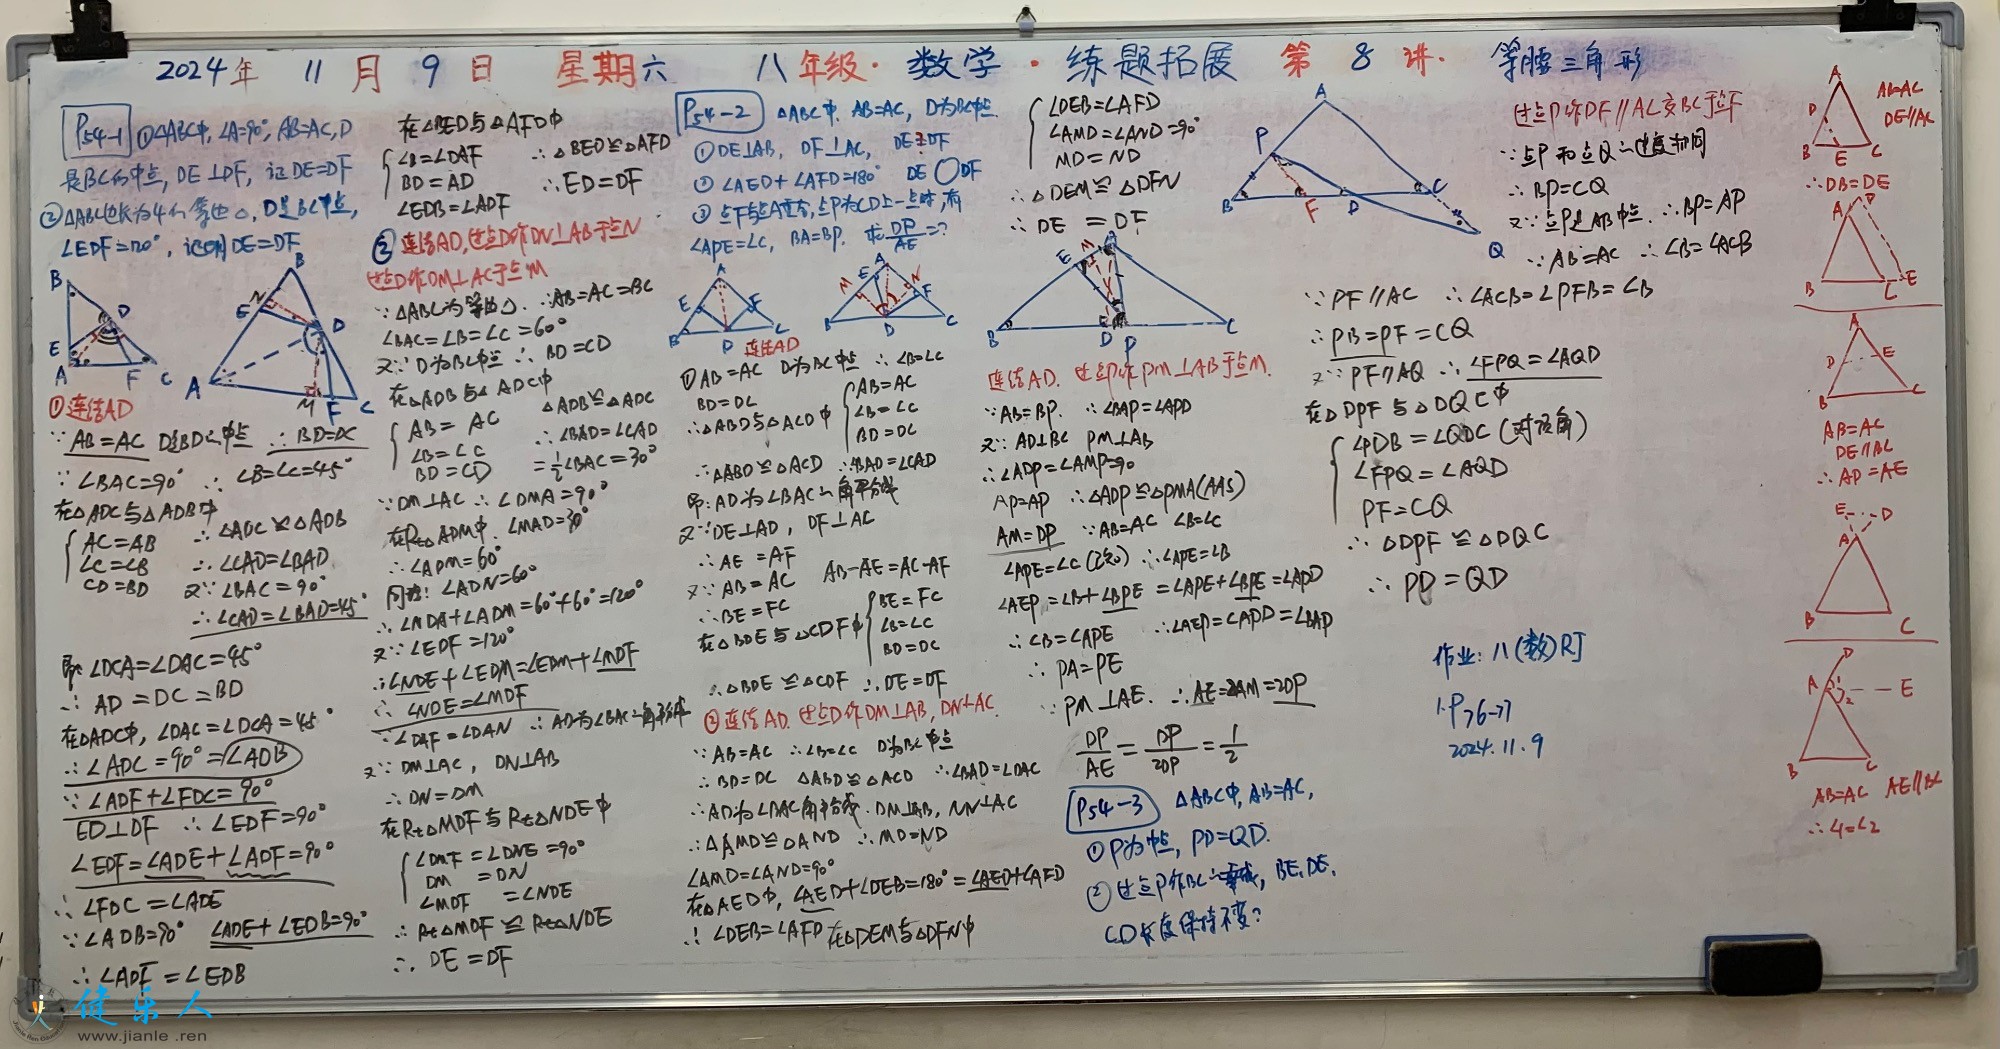 2024年 11月 9日 星期六 八年级·数学·练题拓展 第8讲· 等腰三角形
P54-1 ①△ABC中,∠A=90°,AB=AC,D
是BC的中点,DE⊥DF,证DE=DF
②△ABC边长为4的等边△,D是BC中点,
∠EDF=120°,证明DE=DF
B
E
D
A
F
C
B
N
E
D
A
M
F
C
①连结AD
∵AB=AC D是BD的中点 ∴BD=DC
∵∠BAC=90° ∴∠B=∠C=45°
在△ADC与△ADB中
AC=AB ∴△ADC≌△ADB
∠C=∠B ∴∠CAD=∠BAD
CD=BD 又∵∠BAC=90°
∴∠CAD=∠BAD=45°
即∠DCA=∠DAC=45°
∴AD=DC=BD
在△ADC中,∠DAC=∠DCA=45°
∴∠ADC=90°=∠ADB
∵∠ADF+∠FDC=90°
ED⊥DF ∴∠EDF=90°
∠EDF=∠ADE+∠ADF=90°
∴∠FDC=∠ADE
∵∠ADB=90° ∠ADE+∠EDB=90°
∴∠ADF=∠EDB
在△BED与△AFD中
∠B=∠DAF ∴△BED≌△AFD
BD=AD ∴ED=DF
∠EDB=∠ADF
②连结AD,过点D作DN⊥AB于点N
过点D作DM⊥AC于点M
∵△ABC为等边△ ∴AB=AC=BC
∠BAC=∠B=∠C=60°
又∵D为BC中点 ∴BD=CD
在△ADB与△ADC中
AB=AC △ADB≌△ADC
∠B=∠C ∴∠BAD=∠CAD
BD=CD =1/2∠BAC=30°
∵DM⊥AC ∴∠DMA=90°
在Rt△ADM中,∠MAD=30°
∴∠ADM=60°
同理:∠ADN=60°
∴∠NDA+∠ADM=60°+60°=120°
又∵∠EDF=120°
∴∠NDE+∠EDM=∠EDM+∠MDF
∴∠NDE=∠MDF
∵∠DAF=∠DAN ∴AD为∠BAC的角平分线
又∵DM⊥AC,DN⊥AB
∴DN=DM
在Rt△MDF与Rt△NDE中
∠DMF=∠DNE=90°
DM=DN
∠MDF=∠NDE
∴Rt△MDF≌Rt△NDE
∴DE=DF
P54-2 △ABC中,AB=AC,D为BC中点
①DE⊥AB,DF⊥AC,
②∠AED+∠AFD=180° DE○DF
③点F与点A重合,点P为CD上一点时,有
∠APE=∠C,BA=BP. 求DP/AE=?
A
E
F
B
D
C
连结AD
A
M
E
N
F
B
D
C
①AB=AC D为BC中点 ∴∠B=∠C
BD=DC
∴△ABD与△ACD中
AB=AC
∠B=∠C
BD=DC
∴△ABD≌△ACD ∴∠BAD=∠CAD
即:AD为∠BAC的角平分线
又∵DE⊥AD,DF⊥AC
∴AE=AF
又∵AB=AC AB-AE=AC-AF
∴BE=FC
在△BDE与△CDF中
BE=FC
∠B=∠C
BD=DC
∴△BDE≌△CDF ∴DE=DF
②连结AD.过点D作DM⊥AB,DN⊥AC.
∵AB=AC ∴∠B=∠C D为BC中点
∴BD=DC △ABD≌△ACD ∴∠BAD=∠DAC
∴AD为∠DAC角平分线.DM⊥AB,NN⊥AC
∴△AMD≌△AND ∴MD=ND
∠AMD=∠AND=90°
在△AED中,∠AED+∠DEB=180°=∠AED+∠AFD
∴∠DEB=∠AFD 在△DEM与△DFN中
∠DEB=∠AFD
∠AMD=∠AND=90°
MD=ND
∴△DEM≌△DFN
∴DE=DF
E
M
B
D
P
C
连结AD.过点P作PM⊥AB于点M.
∵AB=BP. ∴∠BAP=∠APD
又∵AD⊥BC PM⊥AB
∴∠ADP=∠AMP=90
AP=AP ∴△ADP≌△PMA(AAS)
AM=DP ∵AB=AC ∠B=∠C
∠APE=∠C(已知) ∴∠APE=∠B
∠AEP=∠B+∠BPE=∠APE+∠BPE=∠APD
∴∠B=∠APE ∴∠AEP=∠APD=∠BAP
∴PA=PE
∵PM⊥AE. ∴AE=2AM=2DP
DP/AE=DP/2DP=1/2
P54-3 △ABC中,AB=AC,
①P为中点,PD=QD.
②过点P作BC的垂线,BE、DE、
CD长度保持不变?
A
P
B
F
D
C
Q
过点P作DF∥AC交BC于点F
∵点P和点Q的速度相同
∴BP=CQ
又∵点P是AB中点.∴BP=AP
∵AB=AC ∴∠B=∠ACB
∵PF∥AC ∴∠ACB=∠PFB=∠B
∴PB=PF=CQ
又∵PF∥AQ ∴∠FPQ=∠AQD
在△DPF与△DQC中
∠PDB=∠QDC(对顶角)
∠FPQ=∠AQD
PF=CQ
∴△DPF≌△DQC
∴PD=QD
作业:八(数)RJ
1.P76→77
2024.11.9
A
D
B
E
C
AB=AC
DE∥AC
∴DB=DE
A
D
B
C
E
A
D
E
B
C
AB=AC
DE∥BC
∴AD=AE
E
D
A
B
C
D
A
1
2
E
B
C
AB=AC AE∥BC
∴∠1=∠2
健乐人
www.jianle.ren